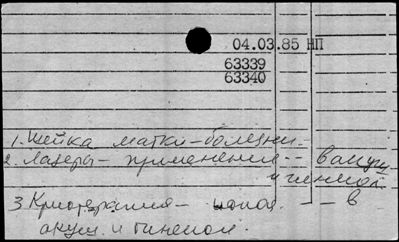 04.03.85 НП
63339
63340
1. Шейка матки - болезни.
2. Лазеры - применения -- в акуш
и гинекол.
3. Криотерапия - -- в
акуш. и гинекол.